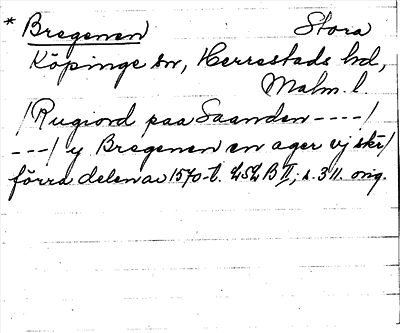 * Bregenen Stora
Köpinge sn, Herrestads hd,
Malm. l.
/Rugiord paa Saanden ----/
---/ y Bregenen en ager vj skr/
förra delen av 1570-t. LSLB II; s. 311. orig.